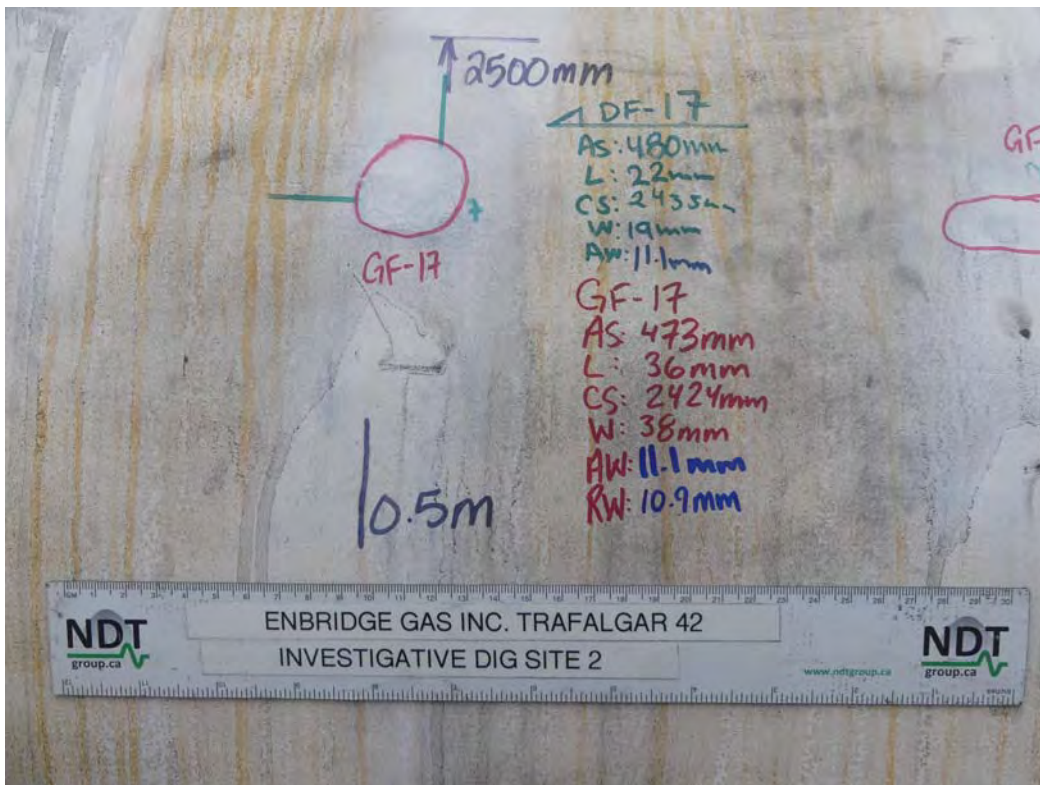 2500mm
DF-17
As: 480mm
L: 22mm
CS: 2435mm
W: 19mm
AW: 11.1mm
GF-17
GF-17
AS: 473mm
L: 36mm
CS: 2424mm
W: 38mm
AW: 11.1mm
RW: 10.9mm
GF
0.5m
NDT
group.ca
ENBRIDGE GAS INC. TRAFALGAR 42
INVESTIGATIVE DIG SITE 2
www.ndtgroup.ca
NDT
group.ca